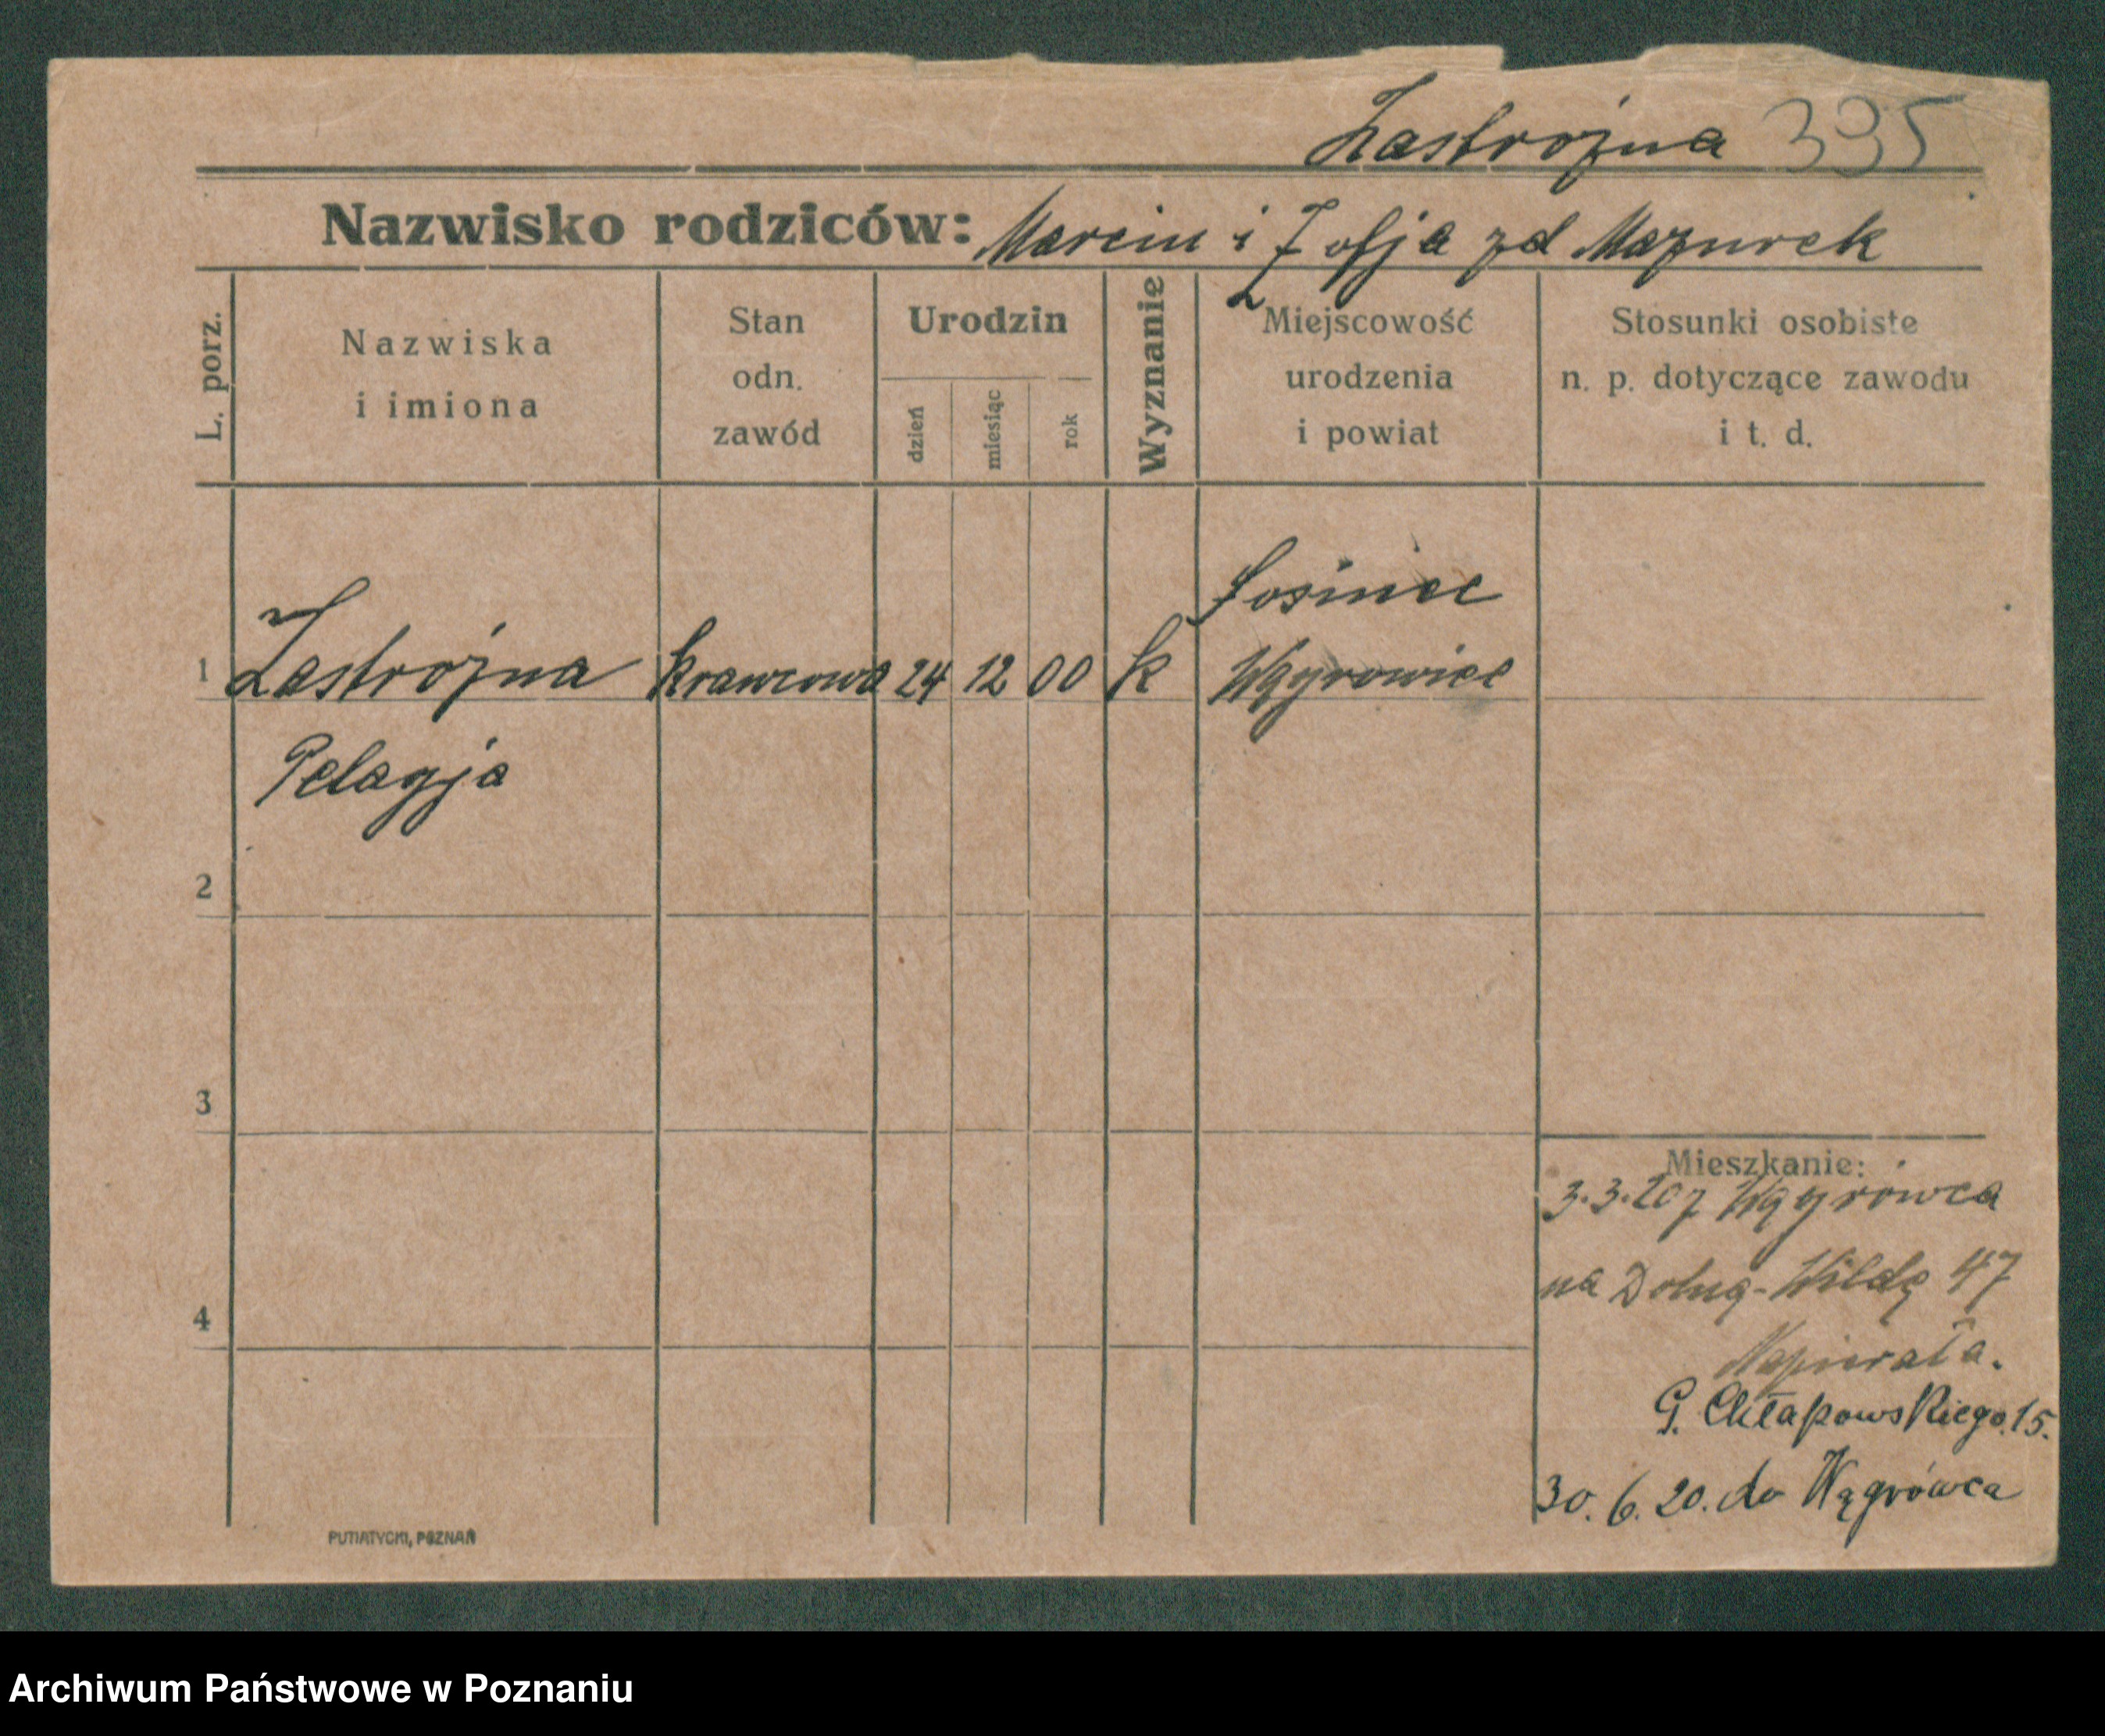 Zastrożna 395
Nazwisko rodziców: Marcin i Zofja zd Mazurek
L. porz.
Nazwiska
i imiona
Stan
odn.
zawód
Urodzin
dzień
miesiąc
rok
Wyznanie
Miejscowość
urodzenia
i powiat
Stosunki osobiste
n. p. dotyczące zawodu
i t. d.
Łosiniec
1 Zastrożna Krawcowa 24 12 00 k Wągrowiec
Pelagja
2
3
4
Mieszkanie:
3.3.20 z Wągrówca
na Dolną-Wildę 47
Napierała.
G. Chłapowskiego 15.
30. 6. 20. do Wągrówca
PUTIATYCKI, POZNAŃ
Archiwum Państwowe w Poznaniu